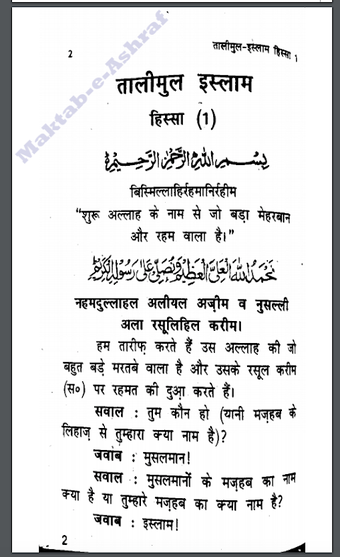 2
तालीमुल-इस्लाम हिस्सा 1
Maktab-e-Ashraf
तालीमुल इस्लाम
हिस्सा (1)
بِسْمِ اللهِ الرَّحْمٰنِ الرَّحِيْمِ
बिस्मिल्लाहिर्रहमानिर्रहीम
“शुरू अल्लाह के नाम से जो बड़ा मेहरबान
और रहम वाला है।”
نَحْمَدُ اللهَ الْعَلِيَّ الْعَظِيْمَ وَنُصَلِّيْ عَلٰى رَسُوْلِهِ الْكَرِيْمِ
नहमदुल्लाहल अलीयल अज़ीम व नुसल्ली
अला रसूलिहिल करीम।
हम तारीफ़ करते हैं उस अल्लाह की जो
बहुत बड़े मरतबे वाला है और उसके रसूल करीम
(स०) पर रहमत की दुआ करते हैं।
सवाल : तुम कौन हो (यानी मज़हब के
लिहाज़ से तुम्हारा क्या नाम है)?
जवाब : मुसलमान!
सवाल : मुसलमानों के मज़हब का नाम
क्या है या तुम्हारे मज़हब का क्या नाम है?
जवाब : इस्लाम!
2